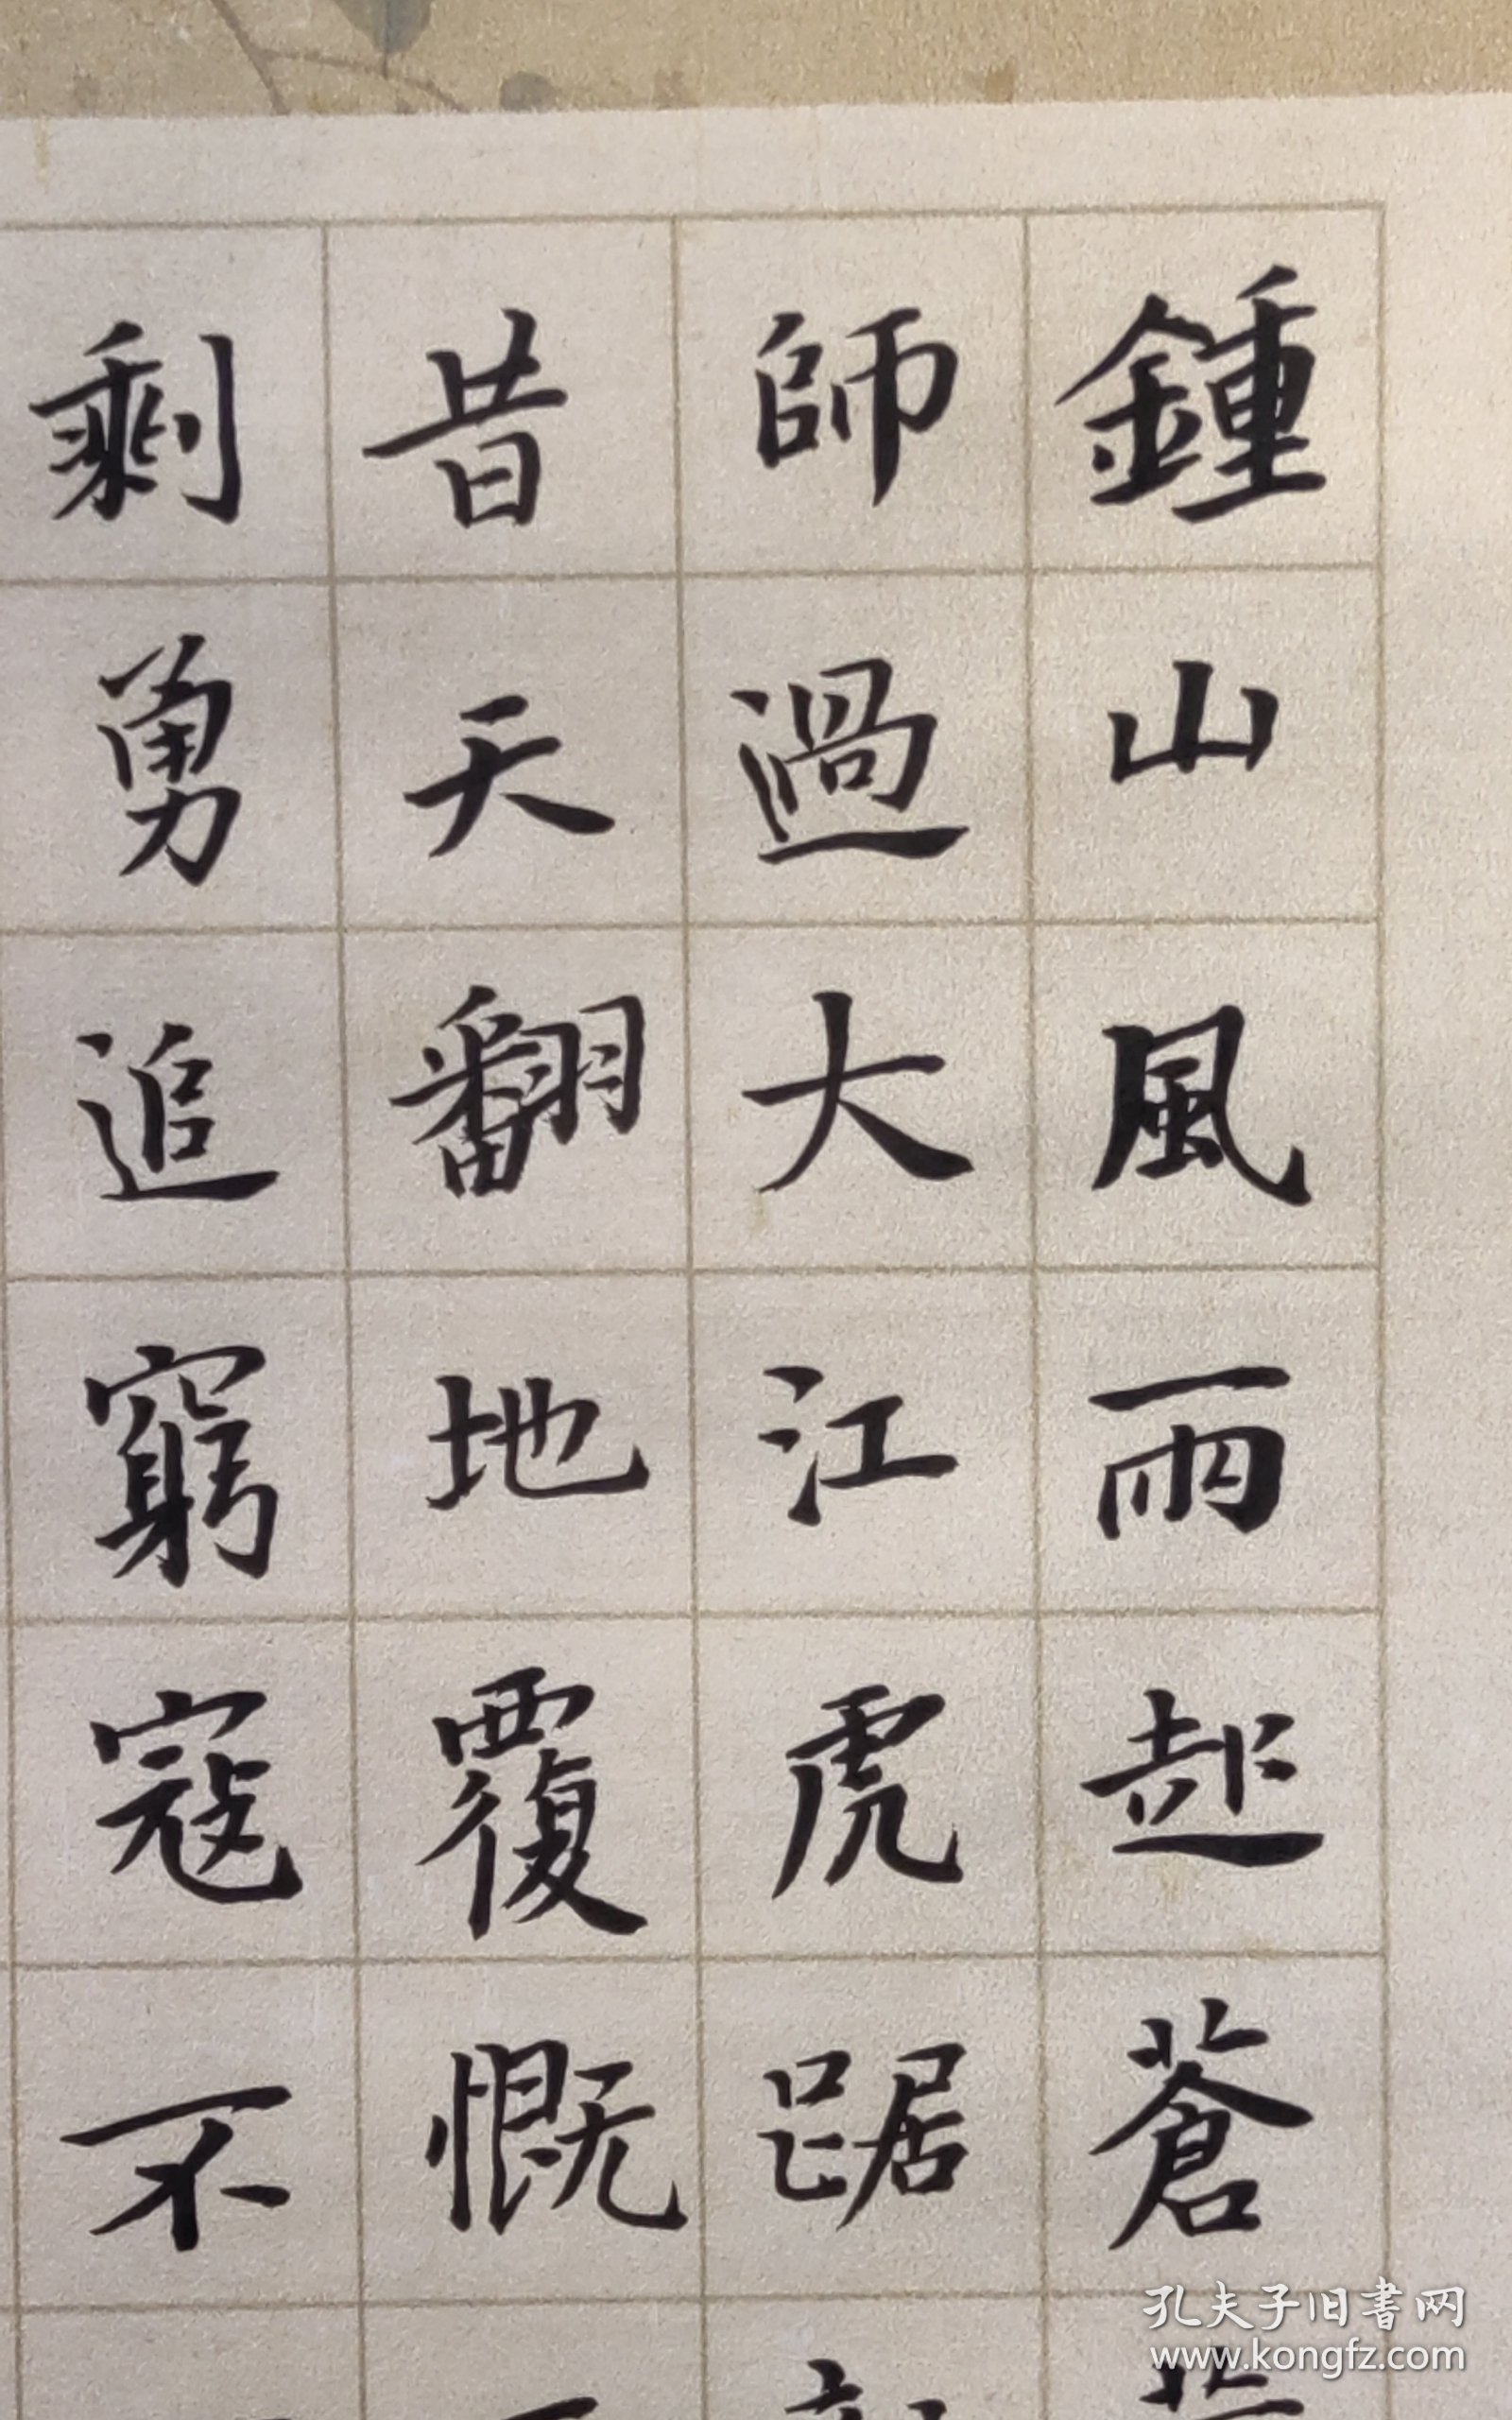 鍾山風雨起蒼
師過大江虎踞
昔天翻地覆慨
剩勇追窮寇不
孔夫子旧書网
www.kongfz.com